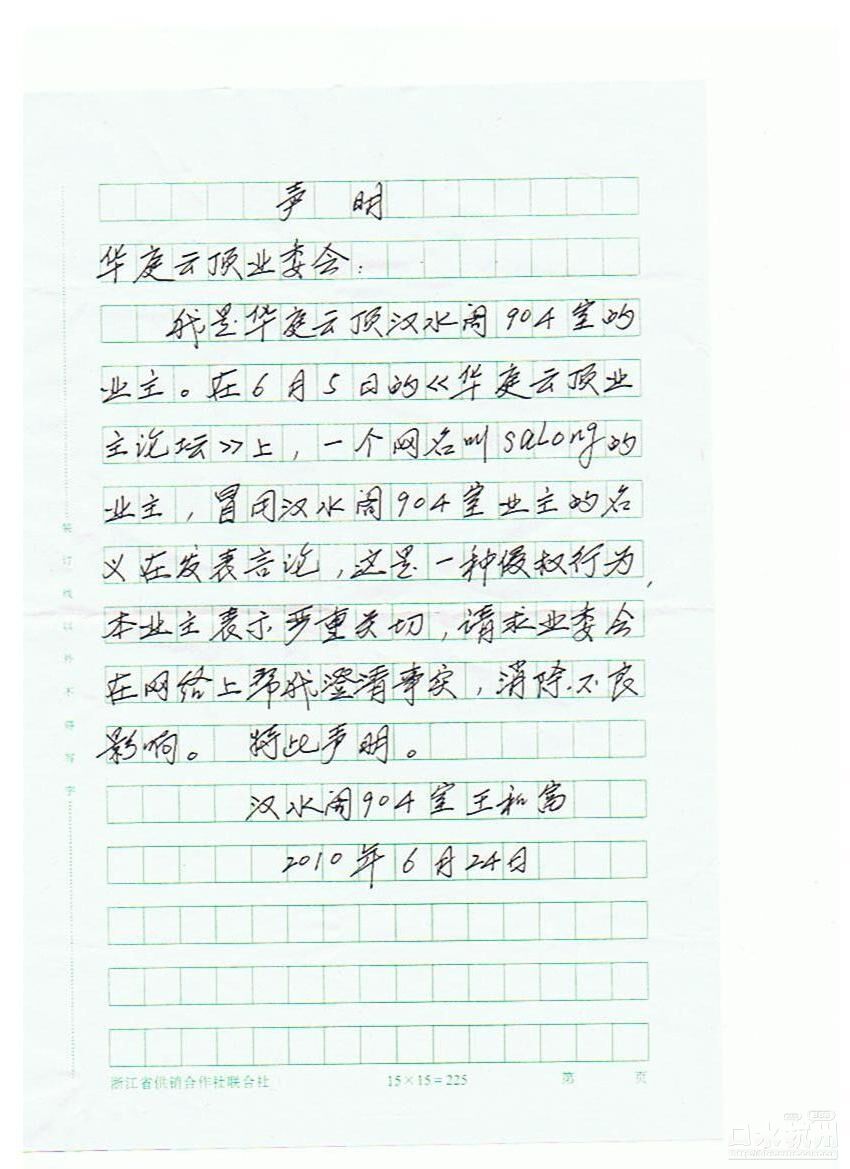 声明
华庭云顶业委会：
我是华庭云顶汉水阁904室的
业主。在6月5日的《华庭云顶业
主论坛》上，一个网名叫salong的
业主，冒用汉水阁904室业主的名
义在发表言论，这是一种侵权行为，
本业主表示严重关切，请求业委会
在网络上帮我澄清事实，消除不良
影响。 特此声明。
汉水阁904室王和富
2010年6月24日
装订线以外不得写字
浙江省供销合作社联合社 15×15=225 第 页
口水杭州